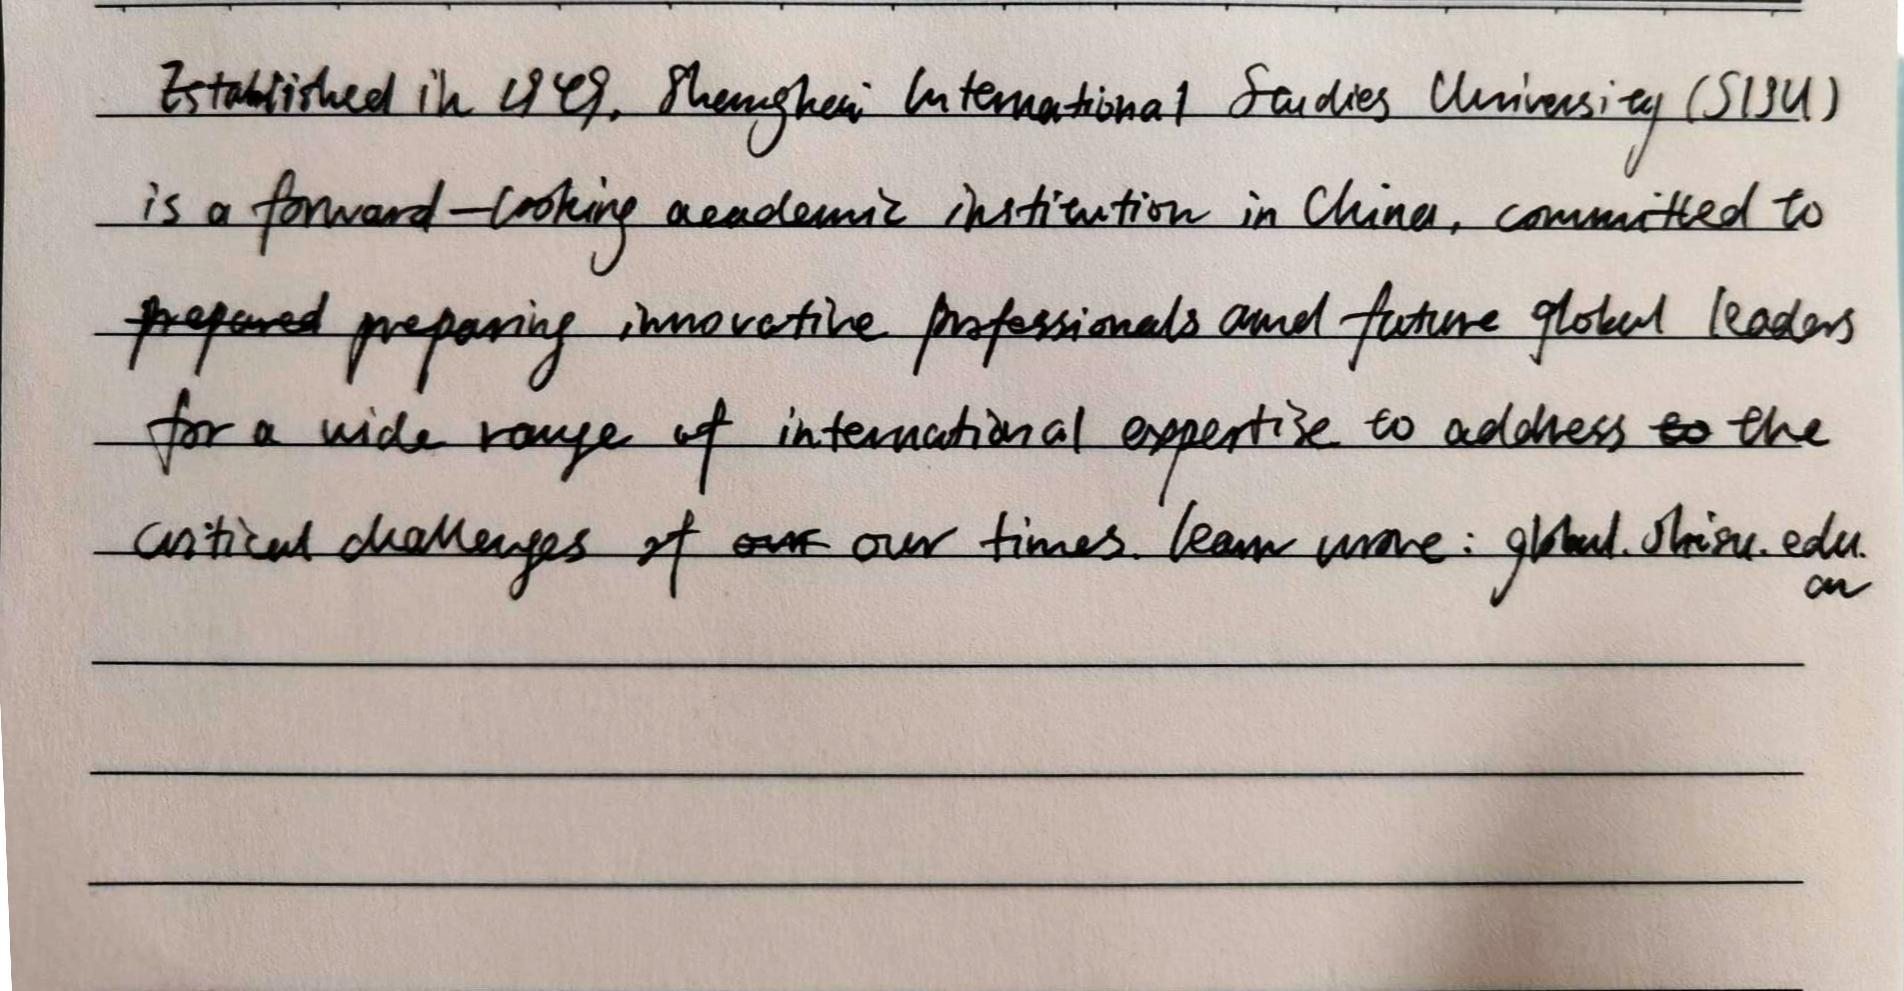 Established in 1949, Shanghai International Studies University (SISU)
is a forward-looking academic institution in China, committed to
prepared preparing innovative professionals and future global leaders
for a wide range of international expertise to address to the
critical challenges of our our times. learn more: global.shisu.edu.
cn